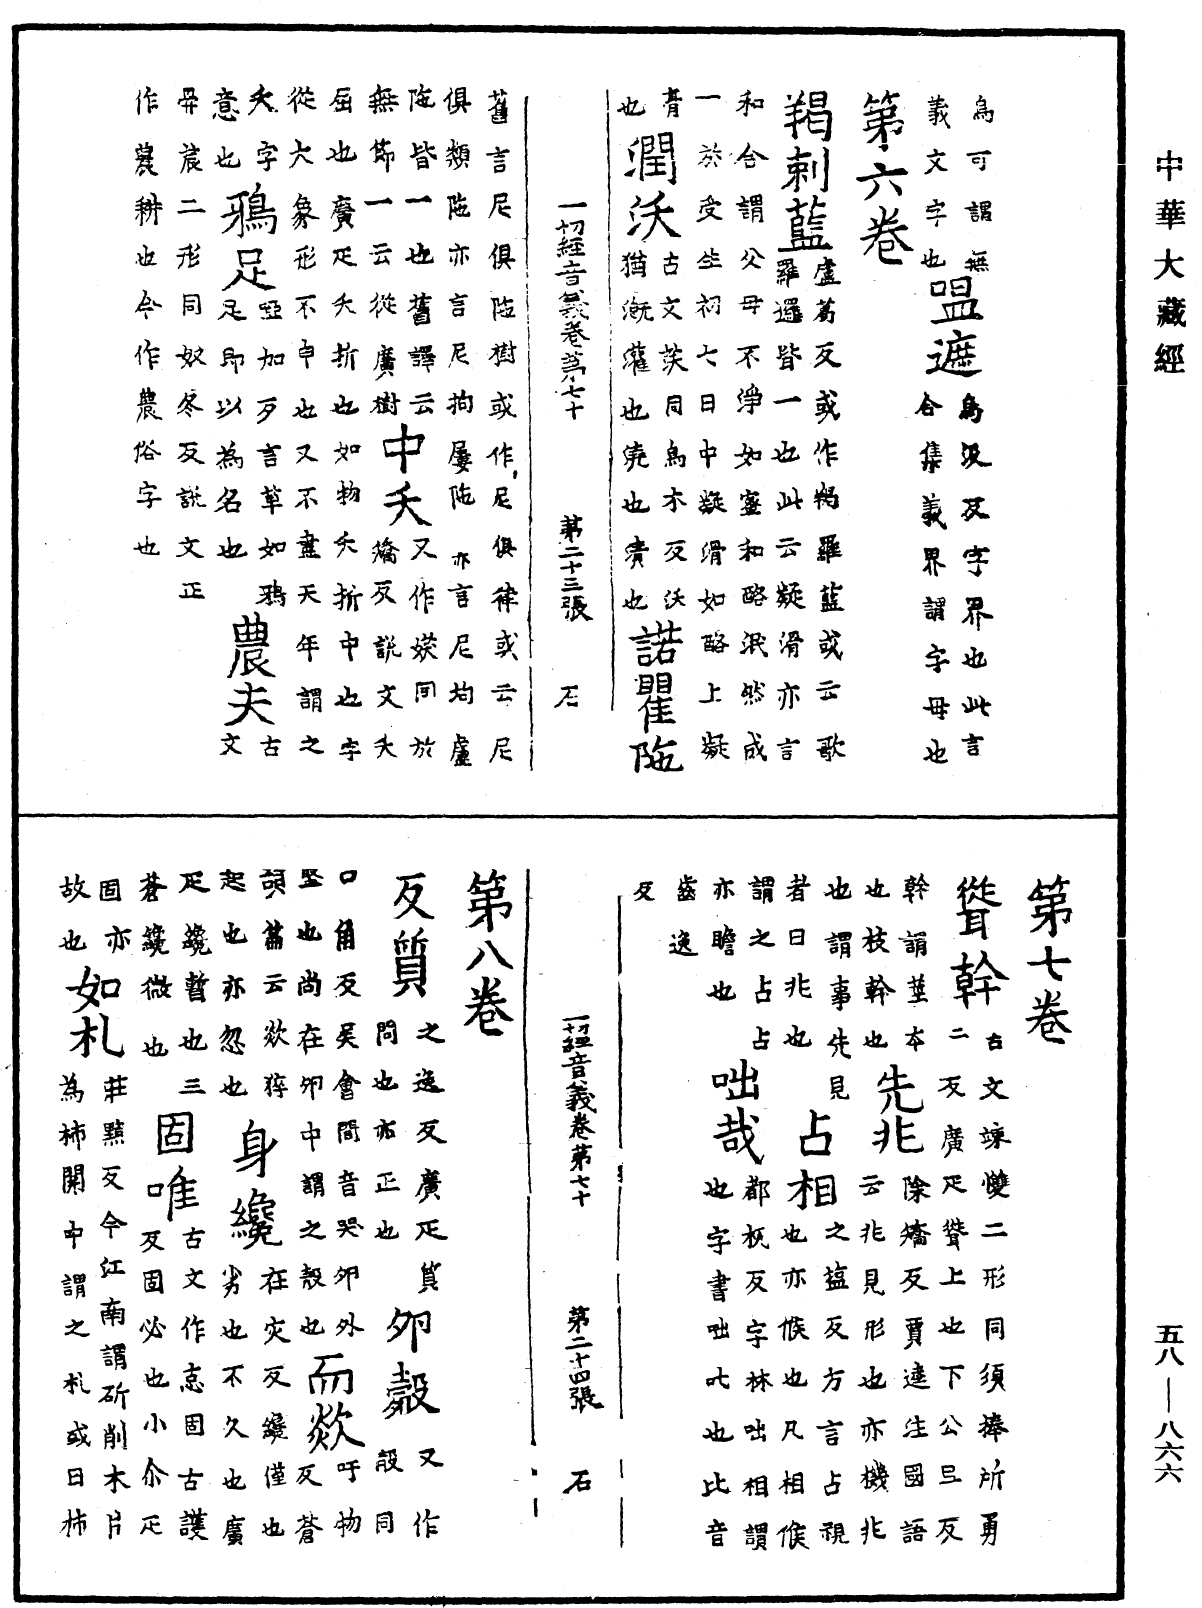 中華大藏經
烏可謂無
義文字也
嗢遮烏沒反字界也此言
合集義界謂字母也
第六卷
羯剌藍盧葛反或作羯羅藍或云歌
羅邏皆一也此云凝滑亦言
和合謂公母不淨如蜜和酪泯然成
一於受生初七日中凝滑如酪上凝
膏也
潤沃古文𦵁同烏木反沃
猶溉灌也澆也漬也
諾瞿陁
一切經音義卷第七十　第二十三張　石
舊言尼俱陁樹或作尼俱律或云尼
俱類陁亦言尼拘屢陁亦言尼拘盧
陁皆一也舊譯云
無節一云從廣樹
中夭又作殀同於
矯反說文夭
屈也廣疋夭折也如物夭折中也字
從大象形不申也又不盡天年謂之
夭字
意也
鵶足啞加反言草如鵶
足即以為名也
農夫古文
𦦥莀二形同奴冬反說文正
作農耕也今作農俗字也
第七卷
聳幹古文竦㩳二形同須捧所勇
二反廣疋聳上也下公旦反
幹謂莖本
也枝幹也
先兆除矯反賈逵注國語
云兆見形也亦機兆
也謂事先見
者曰兆也
占相之塩反方言占視
也亦候也凡相候
謂之占占
亦瞻也
咄哉都杌反字林咄相謂
也字書咄叱也比音
齒逸
反
一切經音義卷第七十　第二十四張　石
第八卷
反質之逸反廣疋質
問也亦正也
卵㲉又作
㲉同
口角反吳會間音哭卵外
堅也尚在卵中謂之㲉也
而欻吁物反蒼
頡篇云欻猝
起也亦忽也
身纔在灾反纔僅也
劣也不久也廣
疋纔暫也三
蒼纔微也
固唯古文作怘固古護
反固必也小尒疋
固亦
故也
如札莊黠反今江南謂斫削木片
為柿開中謂之札或曰柿
五八—八六六